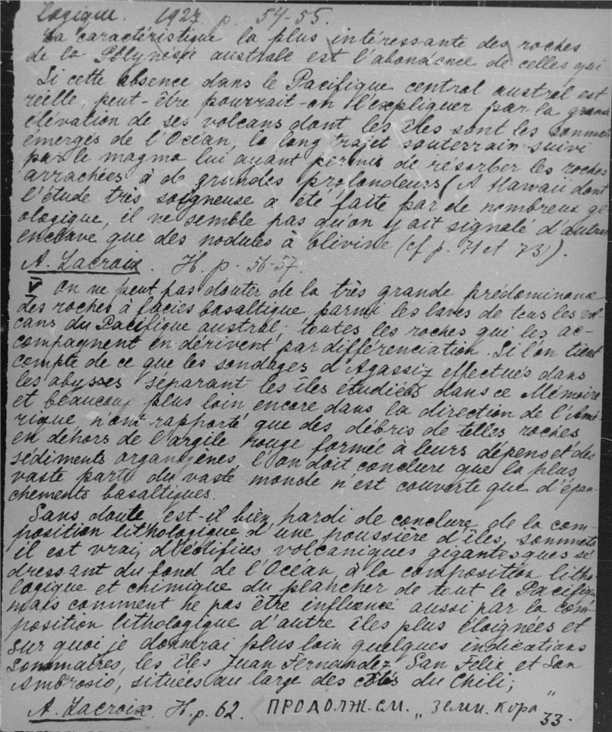 logique. 1927 p. 54-55.
La caractéristique la plus intéressante des roches
de la Polynésie australe est l'abondance de celles qui
Si cette absence dans le Pacifique central austral est
réelle, peut-être pourrait-on l'expliquer par la grande
élévation de ses volcans dont les îles sont les sommets
émergés de l'Océan, le long trajet souterrain suivi
par le magma lui ayant permis de résorber les roches
arrachées à de grandes profondeurs (A Hawaii dont
l'étude très soigneuse a été faite par de nombreux gé
ologique, il ne semble pas qu'on y ait signalé d'autres
enclave que des nodules à olivine (cf p. 71 et 73).
A. Lacroix. H. p. 56-57.
V On ne peut pas douter de la très grande prédominance
des roches à faciès basaltique parmi les laves de tous les vol
cans du Pacifique austral: toutes les roches qui les ac-
compagnent en dérivent par différenciation. Si l'on tient
compte de ce que les sondages d'Agassiz effectués dans
les abysses séparant les îles étudiées dans ce Mémoire
et beaucoup plus loin encore dans la direction de l'Amé
rique n'ont rapporté que des débris de telles roches
en dehors de l'argile rouge formée à leurs dépens et des
sédiments organogènes, l'on doit conclure que la plus
vaste partie du vaste monde n'est couverte que d'épan
chements basaltiques.
Sans doute, est-il bien hardi de conclure de la com-
position lithologique d'une poussière d'îles, sommets
il est vrai, d'édifices volcaniques gigantesques se
dressant du fond de l'Océan à la composition litho
logique et chimique du plancher de tout le Pacifique
mais comment ne pas être influencé aussi par la com
position lithologique d'autre îles plus éloignées et
sur quoi je donnerai plus loin quelques indications
sommaires, les îles Juan Fernandez, San Felix et San
Ambrosio, situées au large des côtes du Chili;
A. Lacroix H. p. 62. ПРОДОЛЖ. СМ. „Земн. кора"
33.